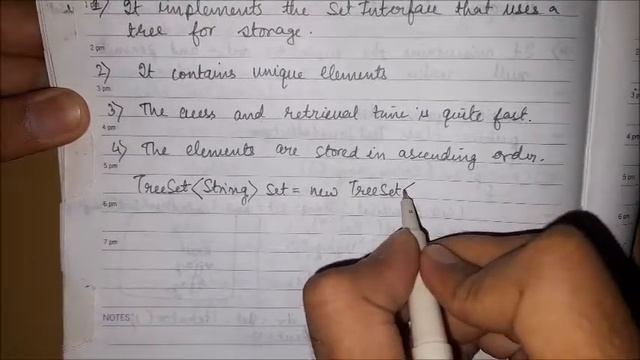 1) It implements the Set Interface that uses a
tree for storage.
2 pm
2) It contains unique elements
3 pm
3) The access and retrieval time is quite fast.
4 pm
4) The elements are stored in ascending order.
5 pm
TreeSet<String> set = new TreeSet<
6 pm
7 pm
NOTES